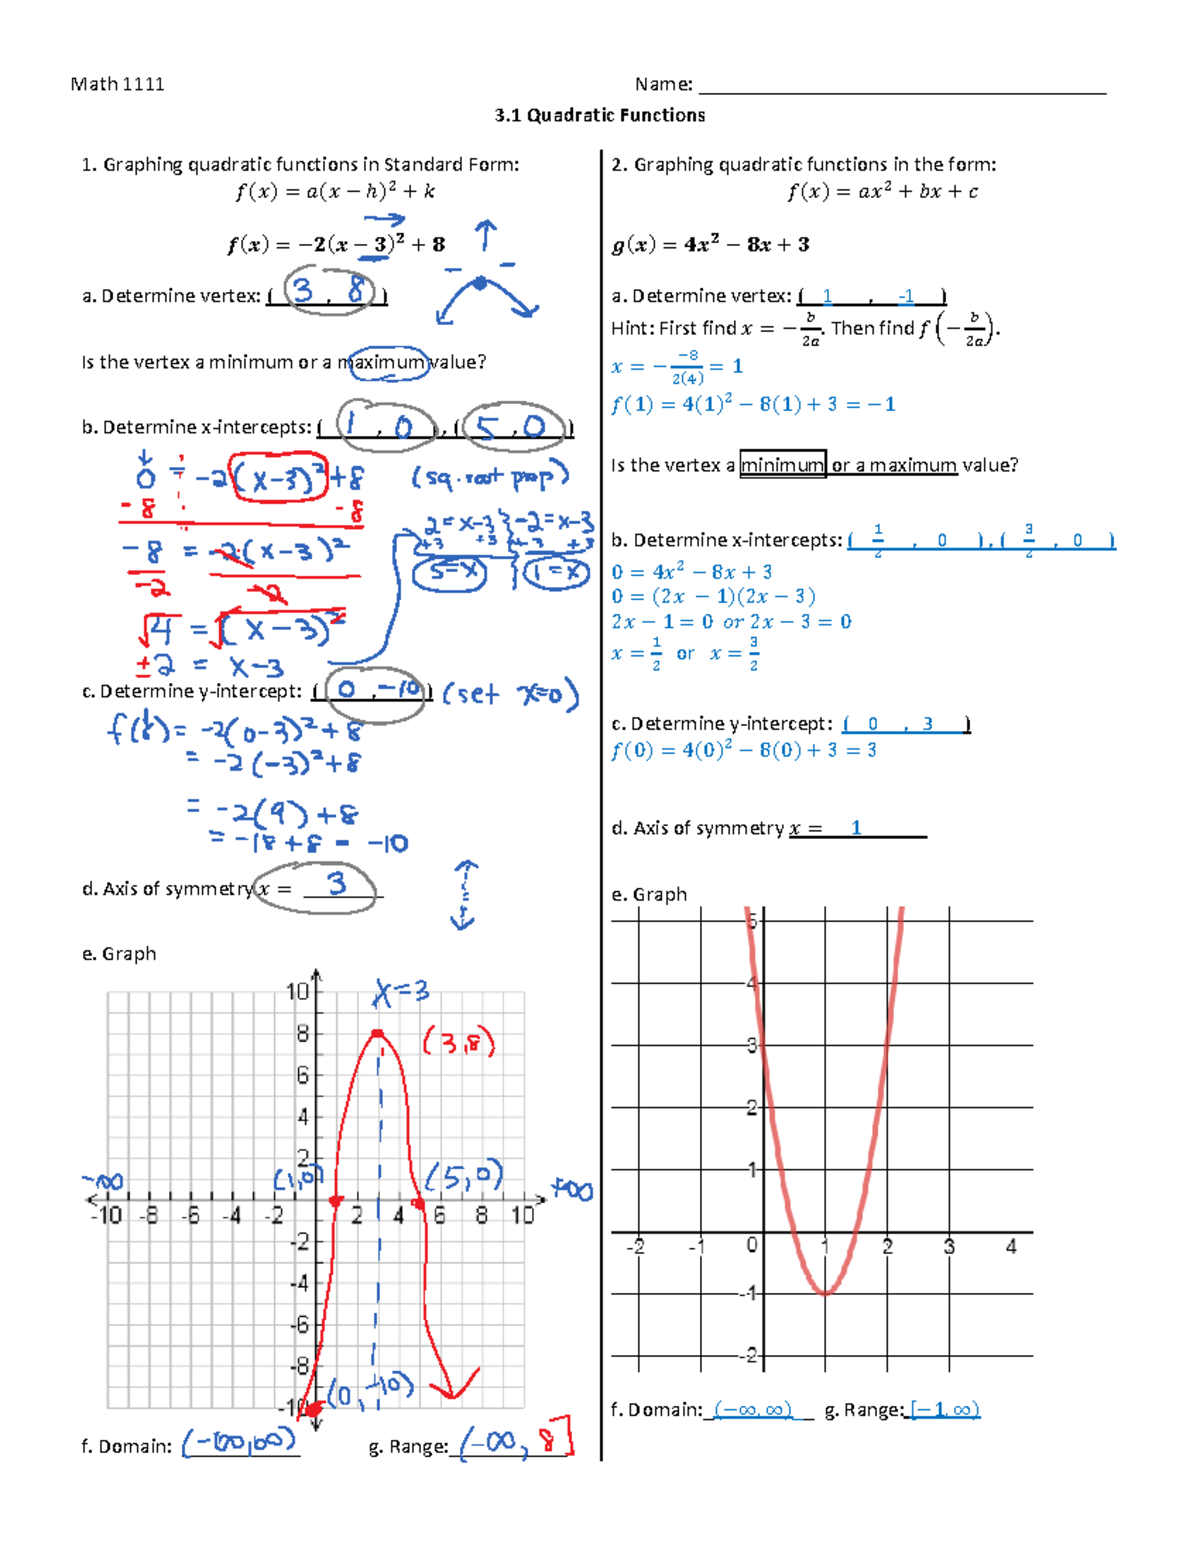 Math 1111 Name:
3.1 Quadratic Functions
1. Graphing quadratic functions in Standard Form:
f(x) = a(x − h)² + k
f(x) = −2(x − 3)² + 8
a. Determine vertex: ( 3 , 8 )
Is the vertex a minimum or a maximum value?
b. Determine x-intercepts: ( 1 , 0 ) , ( 5 , 0 )
0 = -2(x-3)² + 8 (sq. root prop)
-8 -8
-8 = -2(x-3)²
-2 -2
√4 = √(x-3)²
±2 = x-3
2 = x-3 } -2 = x-3
+3 +3 +3 +3
5 = x } 1 = x
c. Determine y-intercept: ( 0 , -10 ) (set x=0)
= -2(0-3)² + 8
= -2(-3)² + 8
= -2(9) + 8
= -18 + 8 = -10
d. Axis of symmetry x = 3
e. Graph
x=3
(3,8)
(1,0)
(5,0)
-∞
+∞
(0,-10)
10
8
6
4
2
-10 -8 -6 -4 -2 2 4 6 8 10
-2
-4
-6
-8
-10
f. Domain: (-∞,∞) g. Range: (-∞, 8]
2. Graphing quadratic functions in the form:
f(x) = ax² + bx + c
g(x) = 4x² − 8x + 3
a. Determine vertex: ( 1 , -1 )
Hint: First find x = −b/2a. Then find f(−b/2a).
x = − −8/2(4) = 1
f(1) = 4(1)² − 8(1) + 3 = −1
Is the vertex a minimum or a maximum value?
b. Determine x-intercepts: ( 1/2 , 0 ) , ( 3/2 , 0 )
0 = 4x² − 8x + 3
0 = (2x − 1)(2x − 3)
2x − 1 = 0 or 2x − 3 = 0
x = 1/2 or x = 3/2
c. Determine y-intercept: ( 0 , 3 )
f(0) = 4(0)² − 8(0) + 3 = 3
d. Axis of symmetry x = 1
e. Graph
5
4
3
2
1
-2 -1 0 1 2 3 4
-1
-2
f. Domain: (−∞, ∞) g. Range: [−1, ∞)